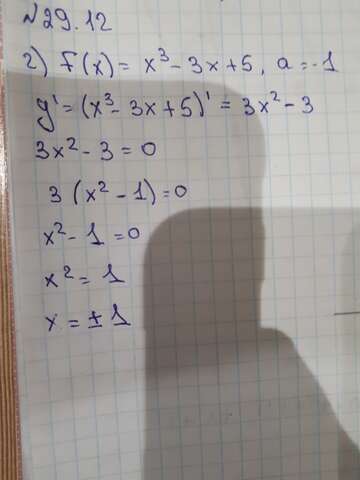 №29.12
2) f(x) = x³ - 3x + 5, a = -1
y' = (x³ - 3x + 5)' = 3x² - 3
3x² - 3 = 0
3(x² - 1) = 0
x² - 1 = 0
x² = 1
x = ± 1